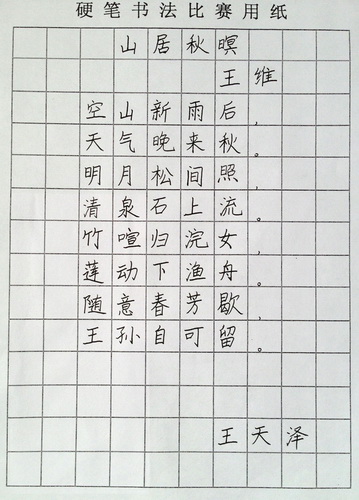 硬笔书法比赛用纸
山居秋暝
王维
空山新雨后，
天气晚来秋。
明月松间照，
清泉石上流。
竹喧归浣女，
莲动下渔舟。
随意春芳歇，
王孙自可留。
王天泽